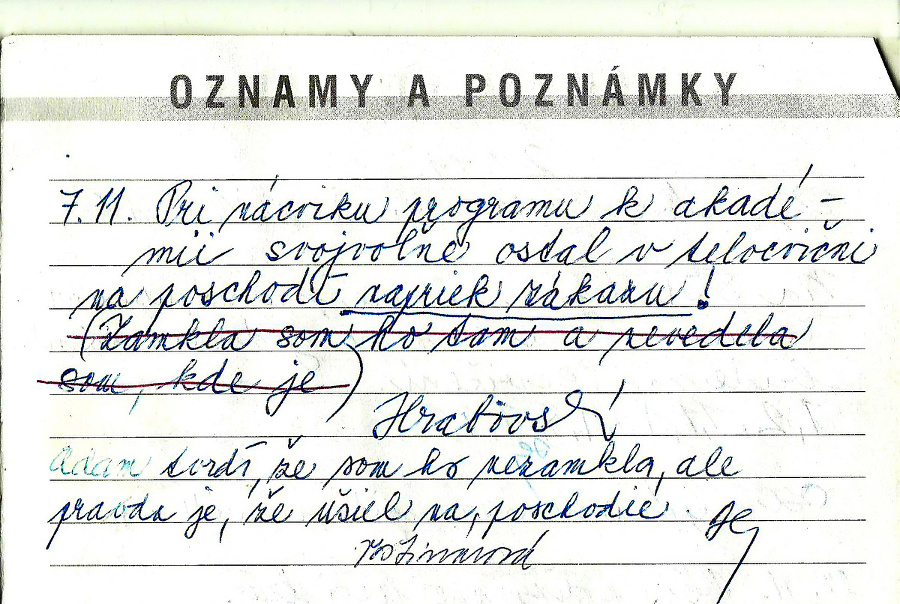 OZNAMY A POZNÁMKY
7.11. Pri nácviku programu k akadé-
mii svojvoľne ostal v telocvični
na poschodí napriek zákazu!
(Zamkla som ho tam a nevedela
som, kde je)
Adam tvrdí, že som ho nezamkla, ale
pravda je, že ušiel na poschodie.